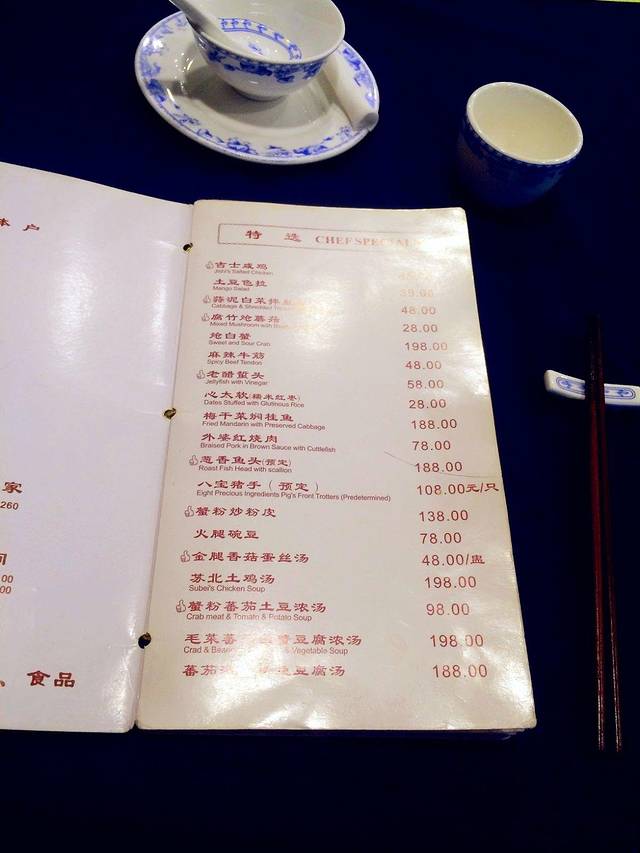 户
家
260
00
00
食品
特 选 CHEF SPECIAL
吉士咸鸡
Jishi's Salted Chicken
土豆色拉
Mango Salad
39.00
蒜泥白菜拌
Cabbage & Shredded
48.00
腐竹炝蘑菇
Mixed Mushroom with
28.00
炝白蟹
Sweet and Sour Crab
198.00
麻辣牛筋
Spicy Beef Tendon
48.00
老醋蜇头
Jellyfish with Vinegar
58.00
心太软(糯米红枣)
Dates Stuffed with Glutinous Rice
28.00
梅干菜焖桂鱼
Fried Mandarin with Preserved Cabbage
188.00
外婆红烧肉
Braised Pork in Brown Sauce with Cuttlefish
78.00
葱香鱼头(预定)
Roast Fish Head with scallion
188.00
八宝猪手（预定）
Eight Precious Ingredients Pig's Front Trotters (Predetermined)
108.00元/只
蟹粉炒粉皮
138.00
火腿碗豆
78.00
金腿香菇蛋丝汤
48.00/盅
苏北土鸡汤
Subei's Chicken Soup
198.00
蟹粉蕃茄土豆浓汤
Crab meat & Tomato & Potato Soup
98.00
毛菜蕃 豆腐浓汤
Crad & & Vegetable Soup
198.00
蕃茄 豆腐汤
188.00